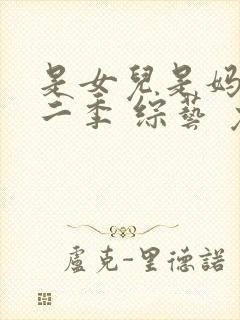 是女兒是媽
二季 綜藝
盧克-里德諾